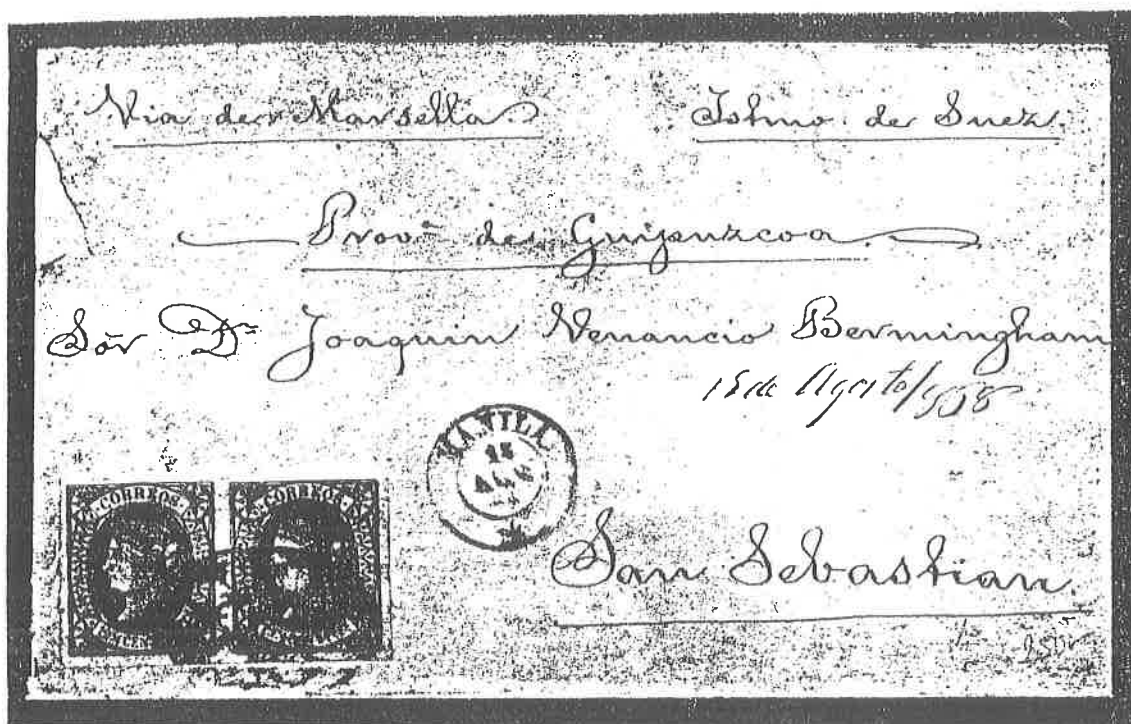 Via de Marsella. Istmo de Suez.
Provª de Guipuzcoa.
Sõr Dⁿ Joaquin Venancio Bermingham
15 de Agosto/858
MANILA
15
AGO
CORREOS CORREOS
San Sebastian.